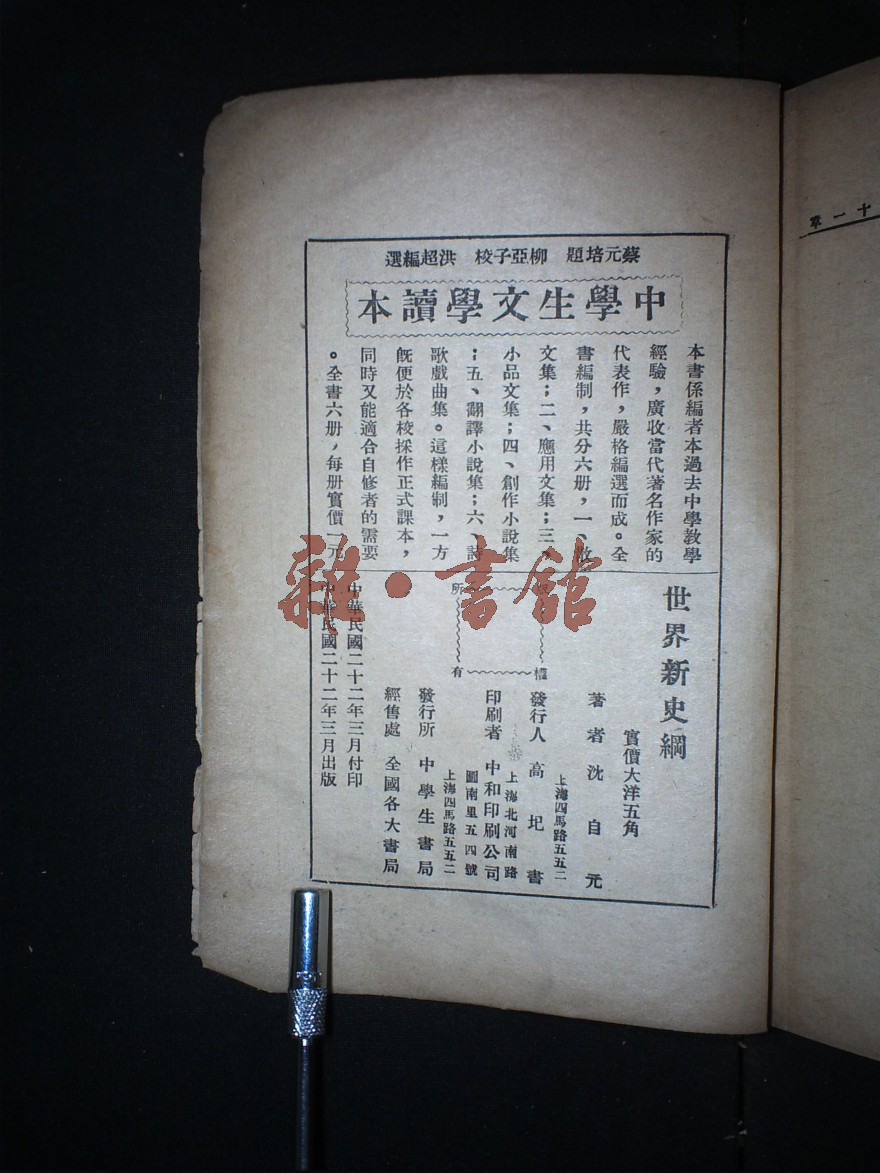 蔡元培題　柳亞子校　洪超編選
中學生文學讀本
本書係編者本過去中學教學
經驗，廣收當代著名作家的
代表作，嚴格編選而成。全
書編制，共分六册，一、散
文集；二、應用文集；三、
小品文集；四、創作小說集
；五、翻譯小說集；六、詩
歌戲曲集。這樣編制，一方
旣便於各校採作正式課本，
同時又能適合自修者的需要
。全書六册，每册實價一元
世界新史綱
實價大洋五角
著者 沈自元
上海四馬路五五二
發行人 高圯書
上海北河南路
印刷者 中和印刷公司
圖南里五四號
上海四馬路五五二
發行所 中學生書局
經售處 全國各大書局
權
所
有
中華民國二十二年三月付印
中華民國二十二年三月出版
雜·書館
十一章